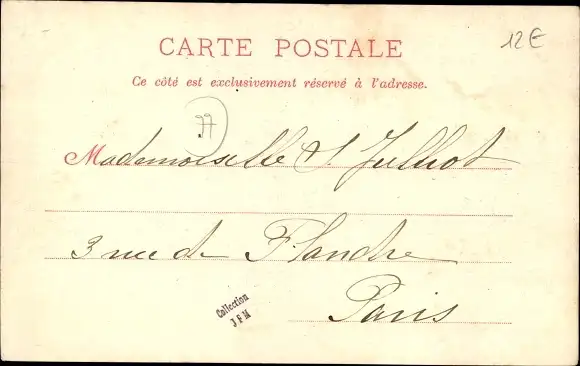 CARTE POSTALE
12E
Ce côté est exclusivement réservé à l'adresse.
77
Mademoiselle S Julliot
3 rue de Flandre
Paris
Collection
JFM